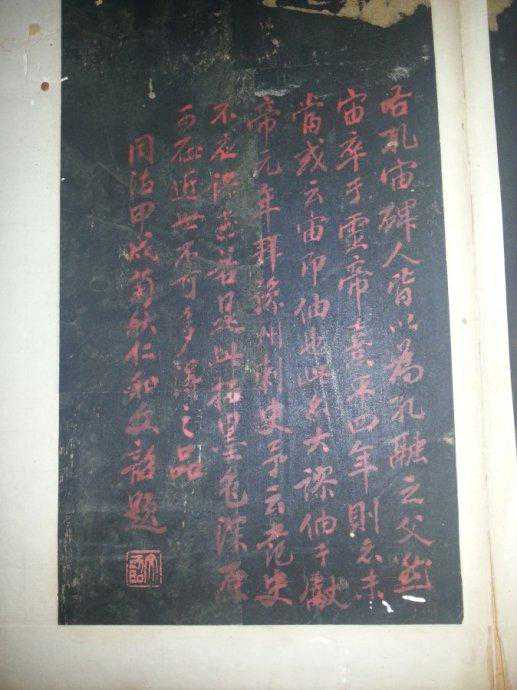 右孔宙碑人皆以為孔融之父然
宙卒于靈帝熹平四年則云未
當或云宙即伷也此則大謬伷于獻
帝元年拜豫州刺史予云范史
不應誤若是此拓墨色深厚
可征近世不可多得之品
同治甲戌菊秋仁和文韶題